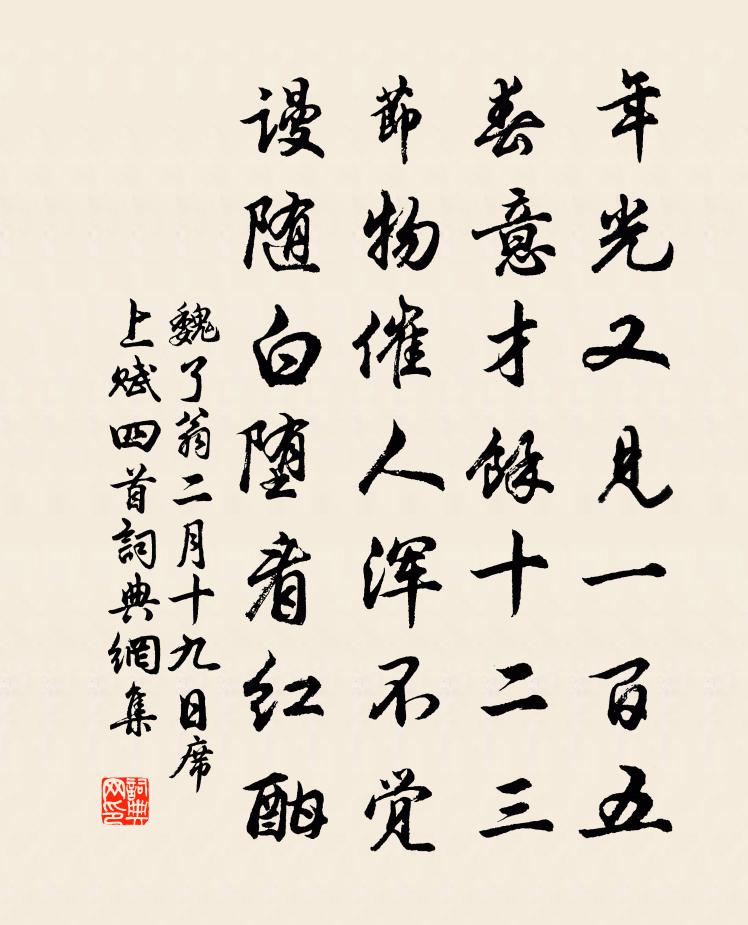 年光又见一百五
春意才餘十二三
節物催人浑不觉
谩随白堕看红酣
魏了翁二月十九日席
上赋四首詞典網集
詞典
网印